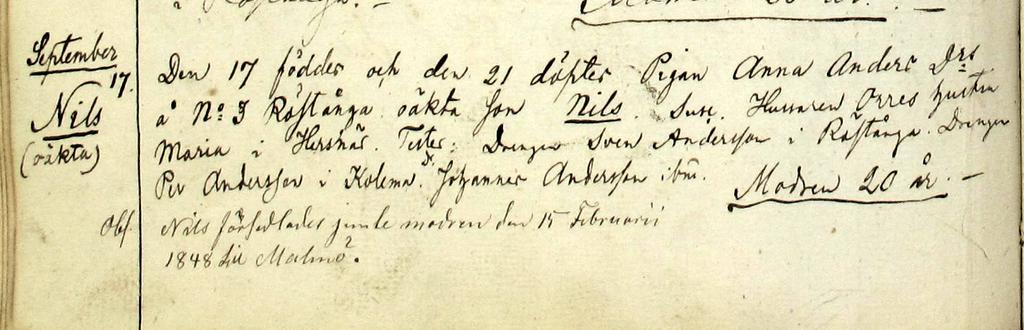 September
17.
Nils
(oäkta)
Den 17 föddes och den 21 döptes Pigan Anna Anders Drs
å No 3 Röstånga oäkta son Nils. Susc. Husaren Orres hustru
Maria i Hersnäs. Testes: Drengen Sven Andersson i Röstånga. Drengen
Per Andersson i Kolema. Dr. Johannes Andersson ibm. Modren 20 år. –
Obs. Nils förpasslades jemte modren den 15 Februarii
1848 till Malmö.